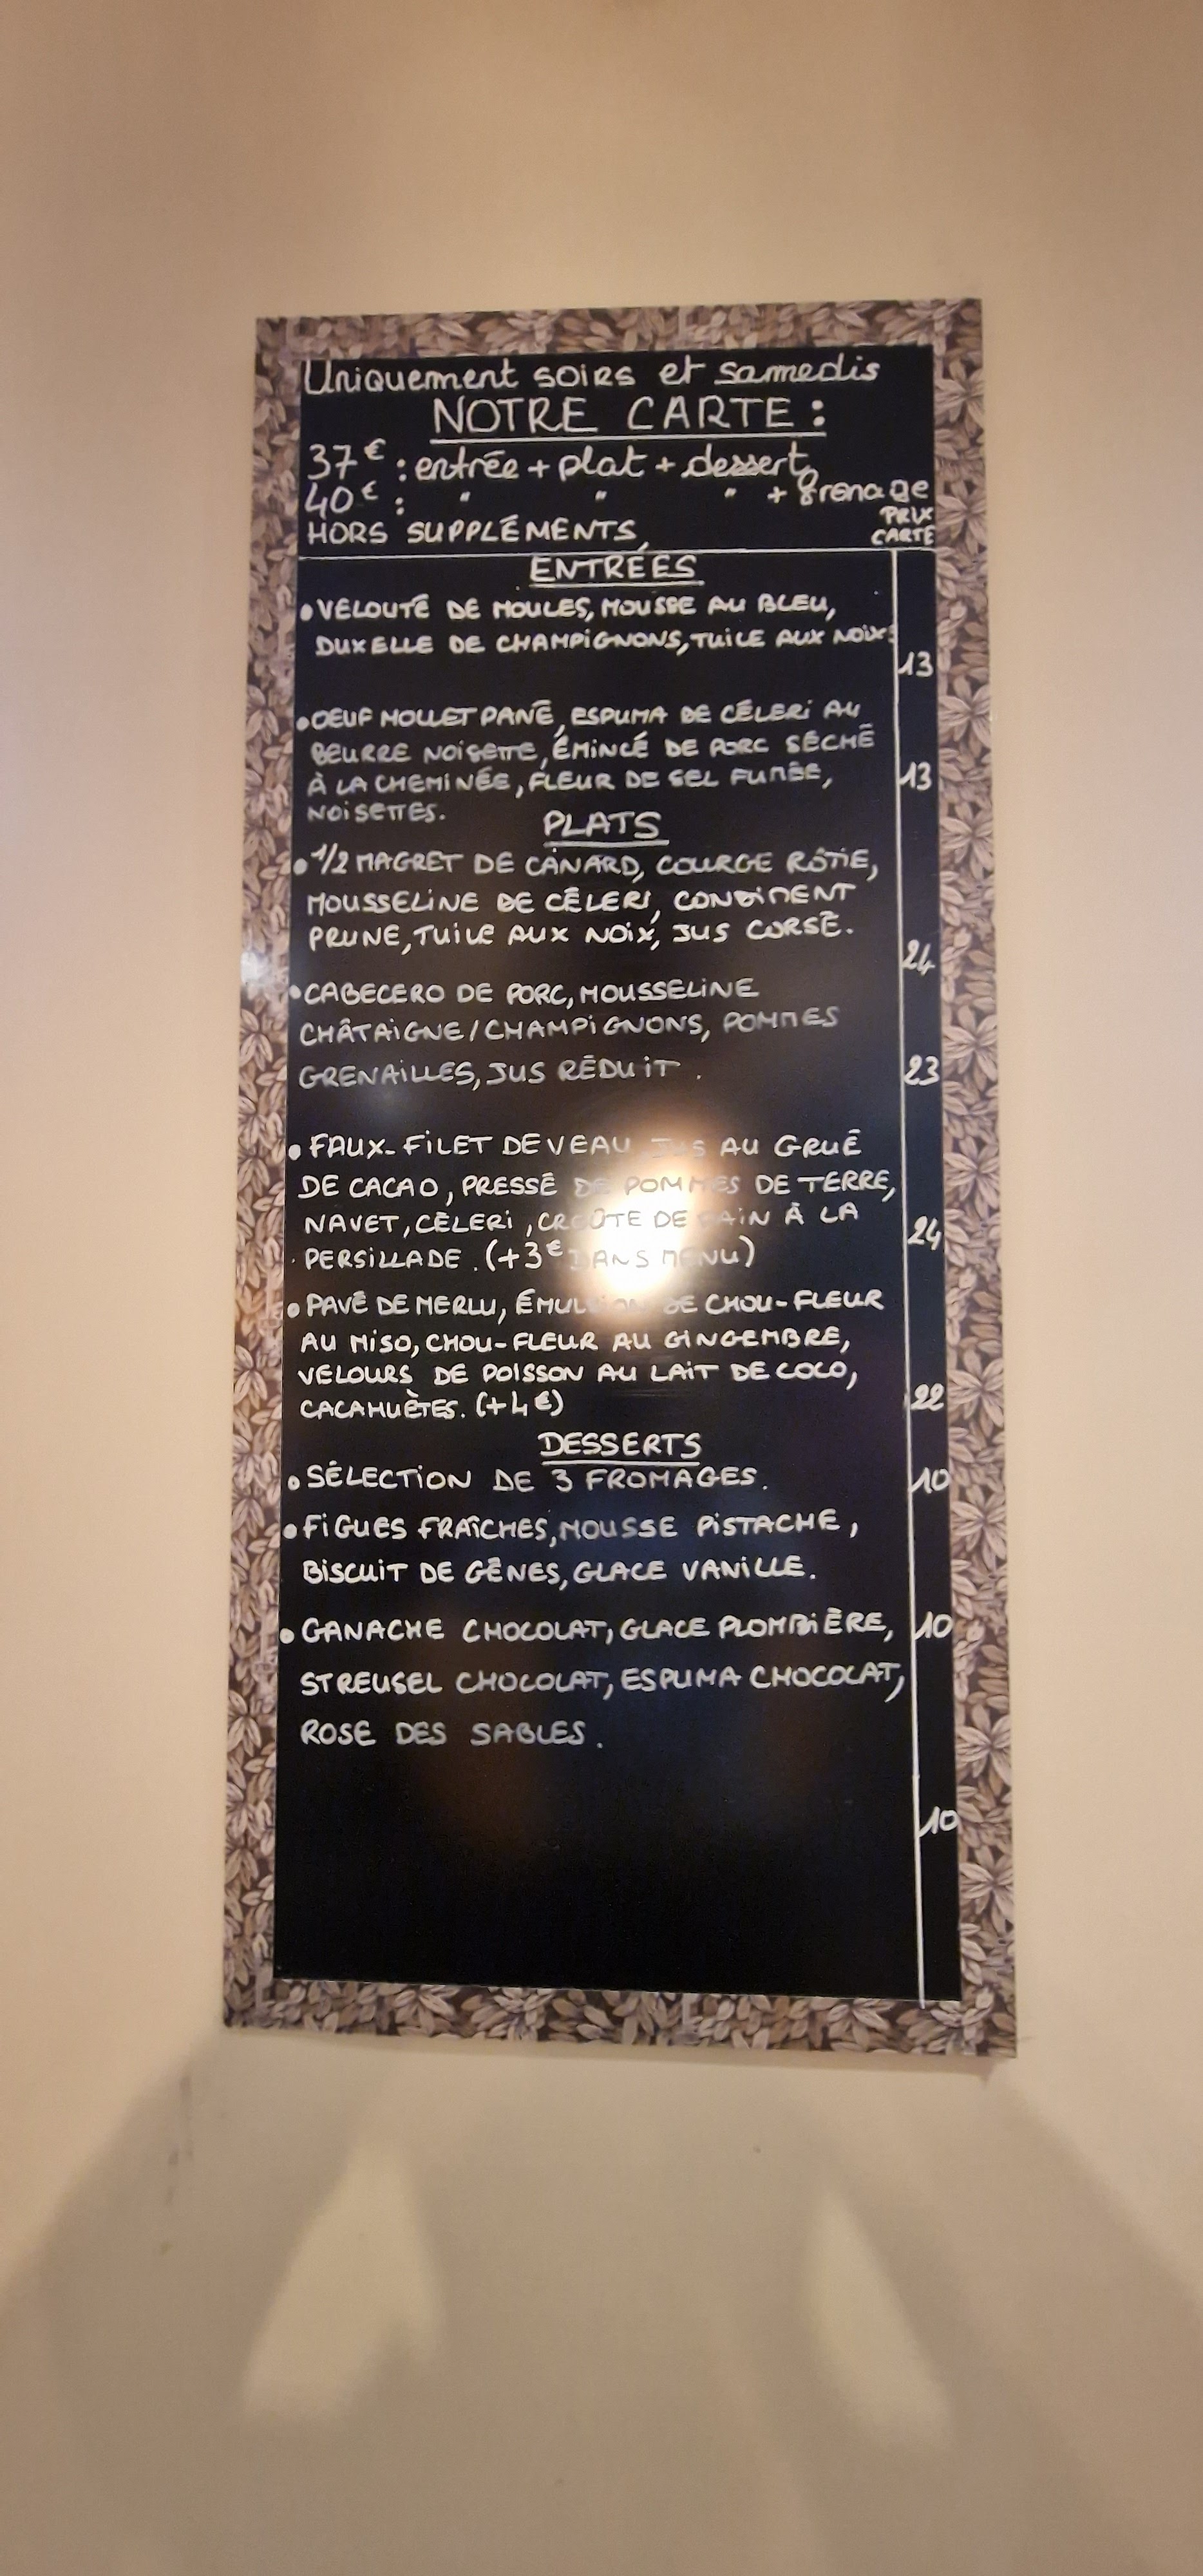 Uniquement soirs et samedis
NOTRE CARTE :
37€ : entrée + plat + dessert
40€ : " " " + fromage
HORS SUPPLÉMENTS
PRIX
CARTE
ENTRÉES
• VELOUTÉ DE MOULES, MOUSSE AU BLEU,
DUXELLE DE CHAMPIGNONS, TUILE AUX NOIX.
13
• OEUF MOLLET PANÉ, ESPUMA DE CÉLERI AU
BEURRE NOISETTE, ÉMINCÉ DE PORC SÉCHÉ
À LA CHEMINÉE, FLEUR DE SEL FUMÉE,
13
NOISETTES.
PLATS
• 1/2 MAGRET DE CANARD, COURGE RÔTIE,
MOUSSELINE DE CÉLERI, CONDIMENT
PRUNE, TUILE AUX NOIX, JUS CORSÉ.
24
• CABECERO DE PORC, MOUSSELINE
CHÂTAIGNE/CHAMPIGNONS, POMMES
GRENAILLES, JUS RÉDUIT.
23
• FAUX-FILET DE VEAU, JUS AU GRUÉ
DE CACAO, PRESSÉ DE POMMES DE TERRE,
NAVET, CÈLERI, CROÛTE DE PAIN À LA
24
PERSILLADE. (+3€ DANS MENU)
• PAVÉ DE MERLU, ÉMULSION DE CHOU-FLEUR
AU MISO, CHOU-FLEUR AU GINGEMBRE,
VELOURS DE POISSON AU LAIT DE COCO,
CACAHUÈTES. (+4€)
22
DESSERTS
• SÉLECTION DE 3 FROMAGES.
10
• FIGUES FRAÎCHES, MOUSSE PISTACHE,
BISCUIT DE GÊNES, GLACE VANILLE.
• GANACHE CHOCOLAT, GLACE PLOMBIÈRE,
10
STREUSEL CHOCOLAT, ESPUMA CHOCOLAT,
ROSE DES SABLES.
10